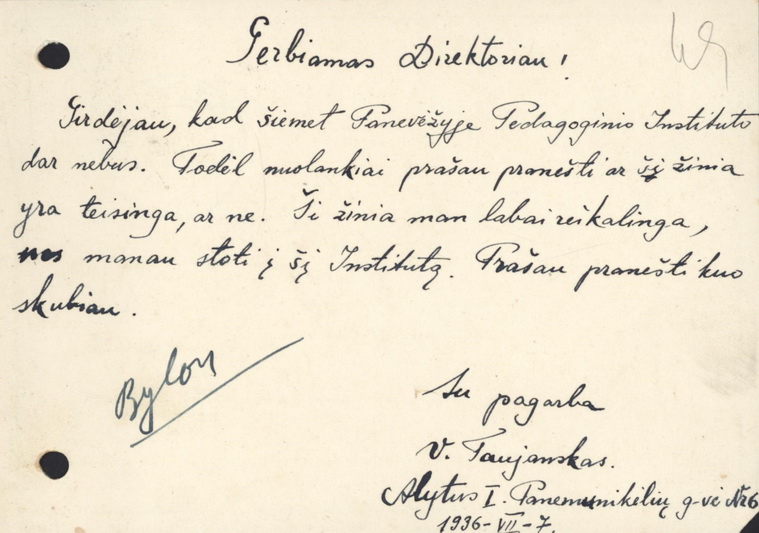 Gerbiamas Direktoriau!
Girdėjau, kad šiemet Panevėžyje Pedagoginio Instituto
dar nebus. Todėl nuolankiai prašau pranešti ar ši žinia
yra teisinga, ar ne. Ši žinia man labai reikalinga,
nes manau stoti į šį Institutą. Prašau pranešti kuo
skubiau.
Bylon
Su pagarba
V. Taujanskas.
Alytus I. Panemunikėlių g-vė Nr 6
1936-VII-7.